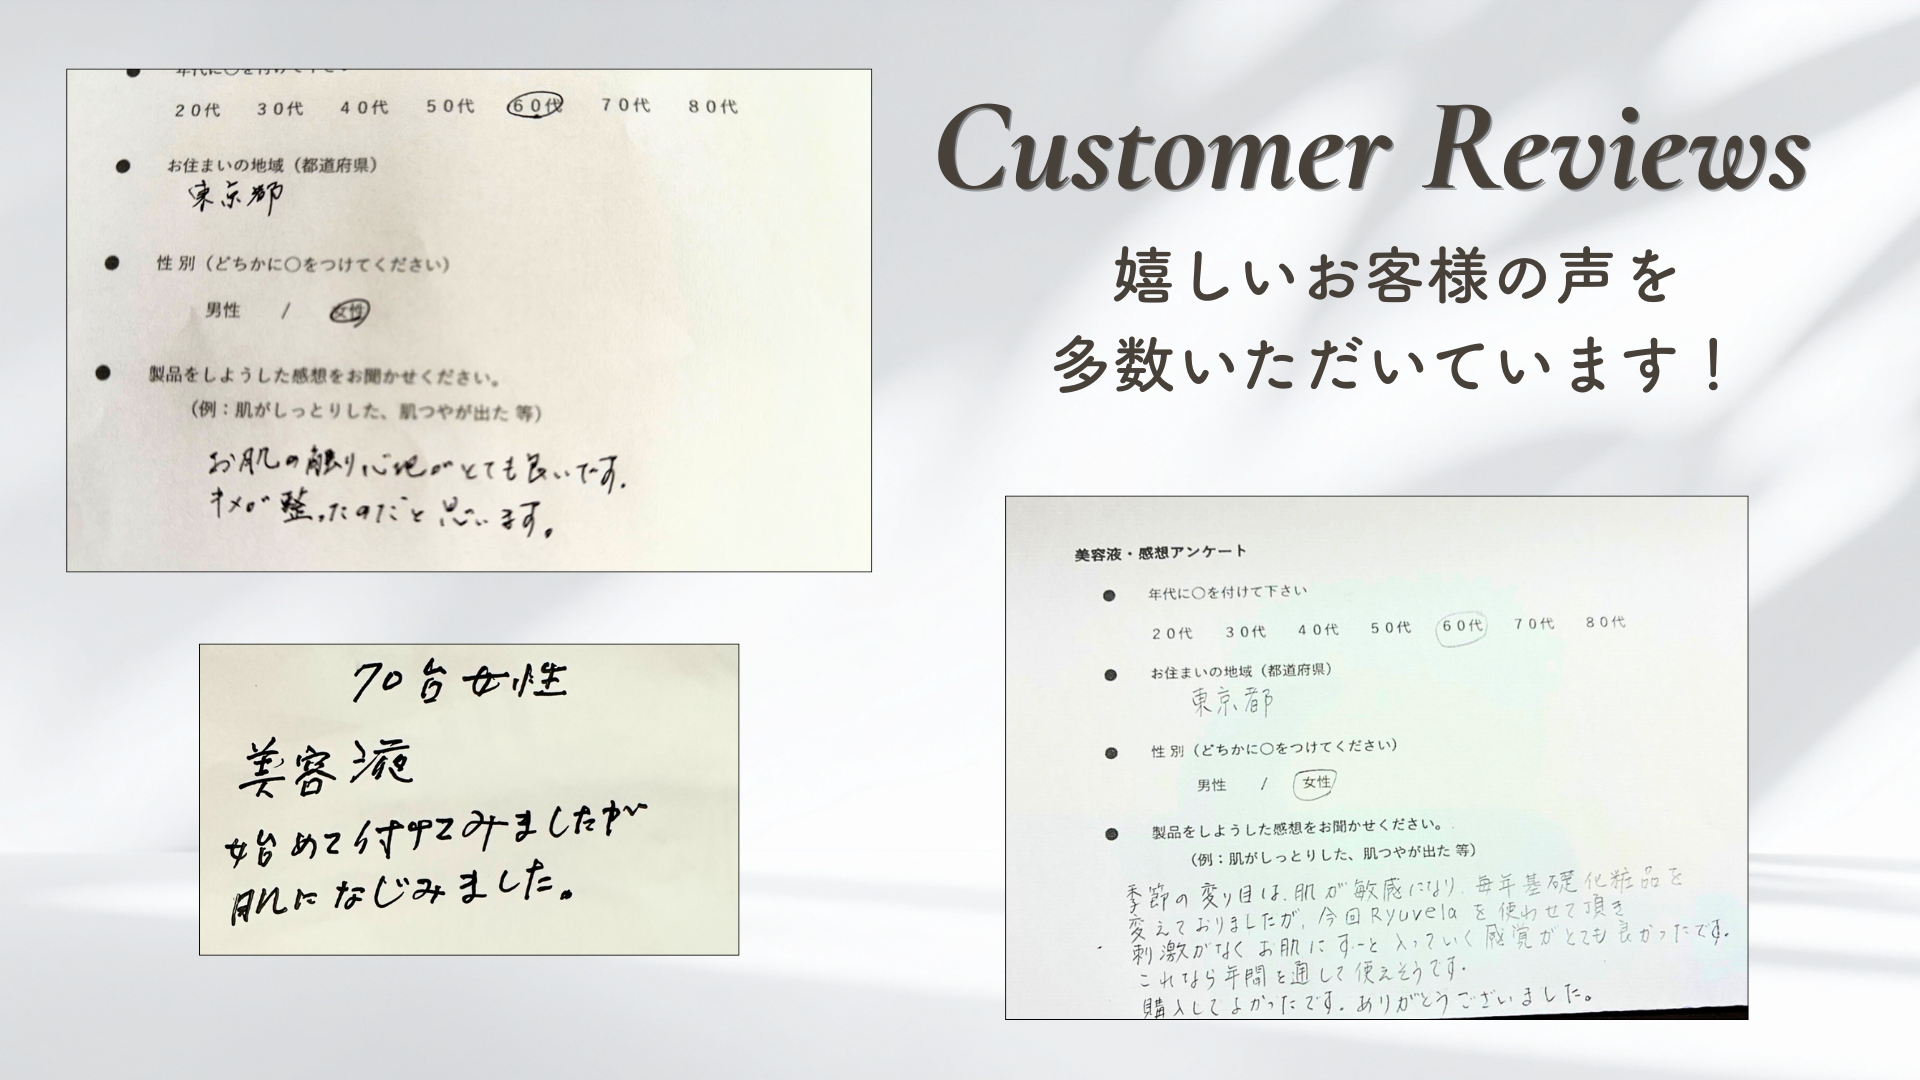 Customer Reviews
嬉しいお客様の声を
多数いただいています！
年代に〇を付けて下さい
20代 30代 40代 50代 60代 70代 80代
お住まいの地域（都道府県）
東京都
性別（どちかに〇をつけてください）
男性 / 女性
製品をしようした感想をお聞かせください。
（例：肌がしっとりした、肌つやが出た 等）
お肌の触り心地がとても良いです。
キメが整ったのだと思います。
70台女性
美容液
始めて付けてみましたが
肌になじみました。
美容液・感想アンケート
年代に〇を付けて下さい
20代 30代 40代 50代 60代 70代 80代
お住まいの地域（都道府県）
東京都
性別（どちかに〇をつけてください）
男性 / 女性
製品をしようした感想をお聞かせください。
（例：肌がしっとりした、肌つやが出た 等）
季節の変り目は、肌が敏感になり、毎年基礎化粧品を
変えておりましたが、今回Ryuvelaを使わせて頂き
刺激がなくお肌にすーと入っていく感覚がとても良かったです。
これなら年間を通して使えそうです。
購入してよかったです。ありがとうございました。